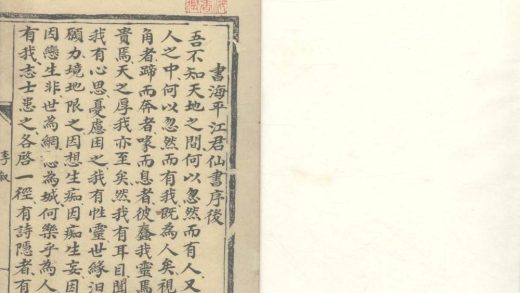 書海平江君仙書序後
吾不知天地之間何以忽然而有人又
人之中何以忽然而有我既為人矣視
角者蹄而奔者喙而息者彼蠢我靈焉
貴焉天之厚我亦至矣然我有耳目聞
我有心思憂慮困之我有性靈世緣汩
願力境地限之因想生痴因痴生妄因
因戀生非世為網心為城何樂乎為人
有我志士患之各啓一徑有詩隱者有